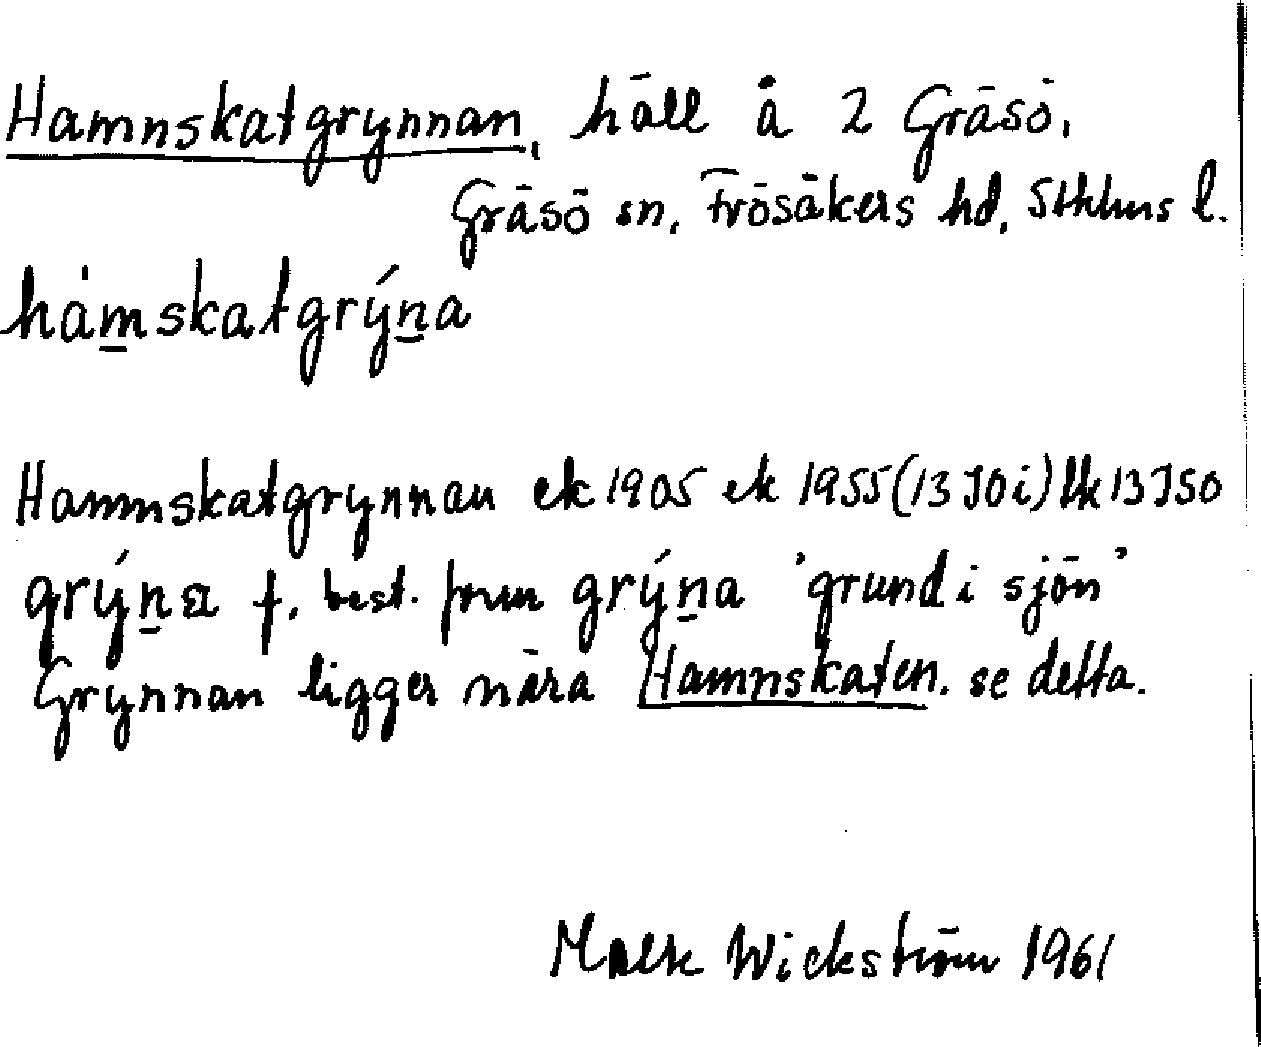 Hamnskatgrynnan, häll å 2 Gräsö,
Gräsö sn, Frösåkers hd, Sthlms l.
hámskatgrýna
Hamnskatgrynnan ek 1905 ek 1955 (13 J0i) lk 13J50
grýna f, best. form grýna 'grund i sjön'
Grynnan ligger nära Hamnskaten. se detta.
Wickström 1961